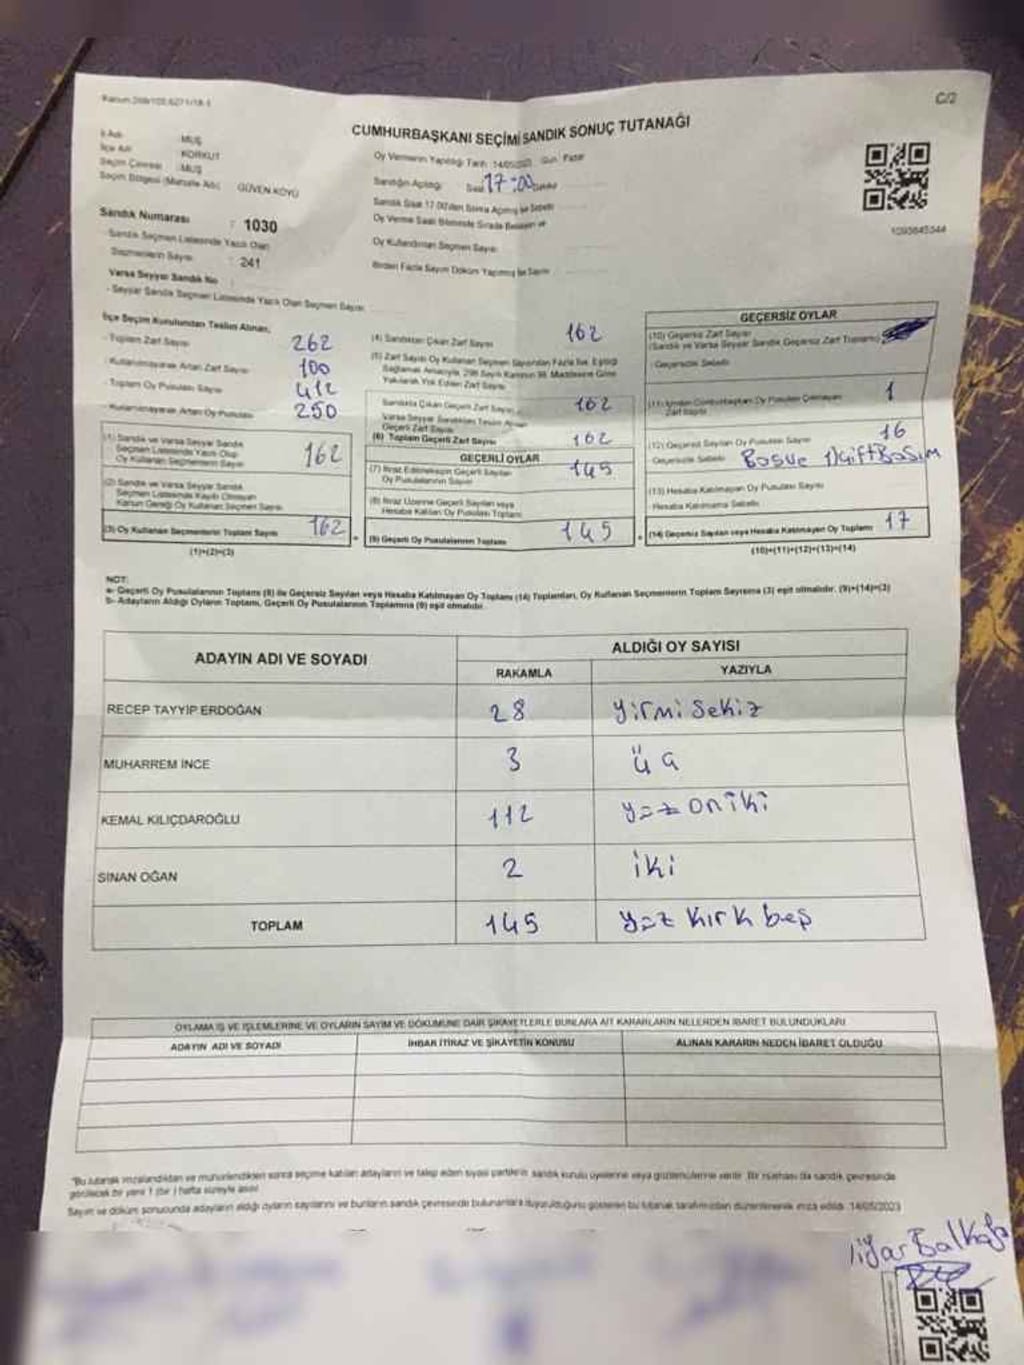 C/2
CUMHURBAŞKANI SEÇİMİ SANDIK SONUÇ TUTANAĞI
İl Adı : MUŞ
İlçe Adı : KORKUT
Seçim Çevresi : MUŞ
Seçim Bölgesi (Mahalle Adı) GÜVEN KÖYÜ
Oy Vermenin Yapıldığı Tarih: 14/05/2023 Gün: Pazar
Sandığın Açıldığı Saat 17:00
Sandık Saat 17.00'den Sonra Açılmış İse Sebebi
Oy Verme Saati Bitiminde Sırada Bekleyen ve
Oy Kullandırılan Seçmen Sayısı
Birden Fazla Sayım Döküm Yapılmış İse Sayısı
1093645344
Sandık Numarası : 1030
Sandık Seçmen Listesinde Yazılı Olan
Seçmenlerin Sayısı : 241
Varsa Seyyar Sandık No :
- Seyyar Sandık Seçmen Listesinde Yazılı Olan Seçmen Sayısı
İlçe Seçim Kurulundan Teslim Alınan,
- Toplam Zarf Sayısı 262
- Kullanılmayarak Artan Zarf Sayısı 100
- Toplam Oy Pusulası Sayısı 412
- Kullanılmayarak Artan Oy Pusulası 250
(1) Sandık ve Varsa Seyyar Sandık
Seçmen Listesinde Yazılı Olup
Oy Kullanan Seçmenlerin Sayısı 162
(2) Sandık ve Varsa Seyyar Sandık
Seçmen Listesinde Kayıtlı Olmayan
Kanun Gereği Oy Kullanan Seçmen Sayısı
(3) Oy Kullanan Seçmenlerin Toplam Sayısı 162
(1)+(2)=(3)
(4) Sandıktan Çıkan Zarf Sayısı 162
(5) Zarf Sayısı Oy Kullanan Seçmen Sayısından Fazla İse, Eşitliği
Sağlamak Amacıyla, 298 Sayılı Kanunun 98. Maddesine Göre
Yakılarak Yok Edilen Zarf Sayısı
Sandıkta Çıkan Geçerli Zarf Sayısı 162
Varsa Seyyar Sandıktan Teslim Alınan
Geçerli Zarf Sayısı
(6) Toplam Geçerli Zarf Sayısı 162
GEÇERLİ OYLAR
(7) İtiraz Edilmeksizin Geçerli Sayılan
Oy Pusulalarının Sayısı 145
(8) İtiraz Üzerine Geçerli Sayılan veya
Hesaba Katılan Oy Pusulaları Toplamı
(9) Geçerli Oy Pusulalarının Toplamı 145
GEÇERSİZ OYLAR
(10) Geçersiz Zarf Sayısı
(Sandık ve Varsa Seyyar Sandık Geçersiz Zarf Toplamı)
Geçersizlik Sebebi
(11) İçinden Cumhurbaşkanı Oy Pusulası Çıkmayan
Zarf Sayısı 1
(12) Geçersiz Sayılan Oy Pusulası Sayısı 16
Geçersizlik Sebebi Boşve ÇiftBasım
(13) Hesaba Katılmayan Oy Pusulası Sayısı
Hesaba Katılmama Sebebi
(14) Geçersiz Sayılan veya Hesaba Katılmayan Oy Toplamı 17
(10)+(11)+(12)+(13)=(14)
NOT:
a- Geçerli Oy Pusulalarının Toplamı (9) ile Geçersiz Sayılan veya Hesaba Katılmayan Oy Toplamı (14) Toplamları, Oy Kullanan Seçmenlerin Toplam Sayısına (3) eşit olmalıdır. (9)+(14)=(3)
b- Adayların Aldığı Oyların Toplamı, Geçerli Oy Pusulalarının Toplamına (9) eşit olmalıdır.
ADAYIN ADI VE SOYADI ALDIĞI OY SAYISI
RAKAMLA YAZIYLA
RECEP TAYYİP ERDOĞAN 28 yirmi sekiz
MUHARREM İNCE 3 üç
KEMAL KILIÇDAROĞLU 112 yüz oniki
SİNAN OĞAN 2 iki
TOPLAM 145 yüz kırk beş
OYLAMA İŞ VE İŞLEMLERİNE VE OYLARIN SAYIM VE DÖKÜMÜNE DAİR ŞİKAYETLERLE BUNLARA AİT KARARLARIN NELERDEN İBARET BULUNDUKLARI
ADAYIN ADI VE SOYADI İHBAR İTİRAZ VE ŞİKAYETİN KONUSU ALINAN KARARIN NEDEN İBARET OLDUĞU
"Bu tutanak imzalandıktan ve mühürlendikten sonra seçime katılan adayların ve talep eden siyasi partilerin sandık kurulu üyelerine veya gözlemcilerine verilir. Bir nüshası da sandık çevresinde
görülecek bir yere 1 (bir) hafta süreyle asılır.
Sayım ve döküm sonucunda adayların aldığı oyların sayılarını ve bunların sandık çevresinde bulunanlara duyurulduğunu gösteren bu tutanak tarafımızdan düzenlenerek imza edildi. 14/05/2023